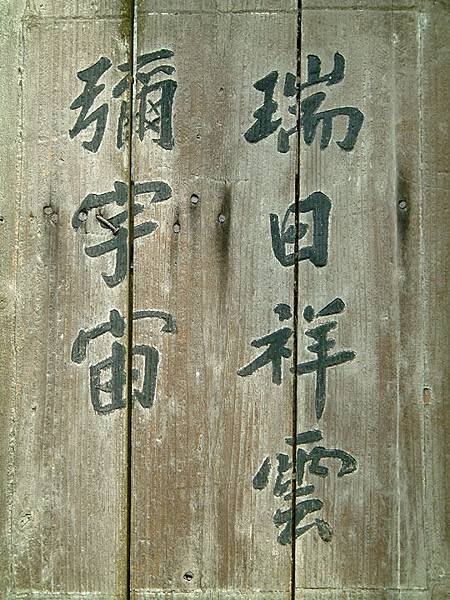 瑞日祥雲
彌宇宙